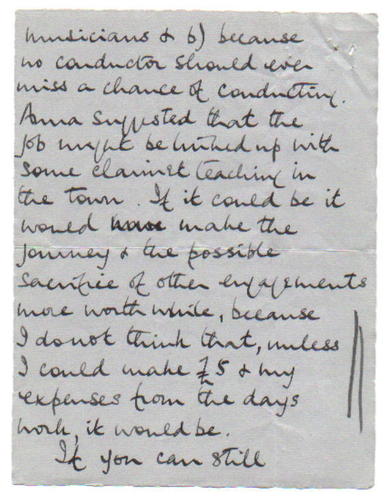 musicians & b) because
no conductor should ever
miss a chance of conducting.
Anna suggested that the
job might be linked up with
some clarinet teaching in
the town. If it could be it
would make the
journey & the possible
sacrifice of other engagements
more worth while, because
I do not think that, unless
I could make £5 & my
expenses from the days
work, it would be.
If you can still